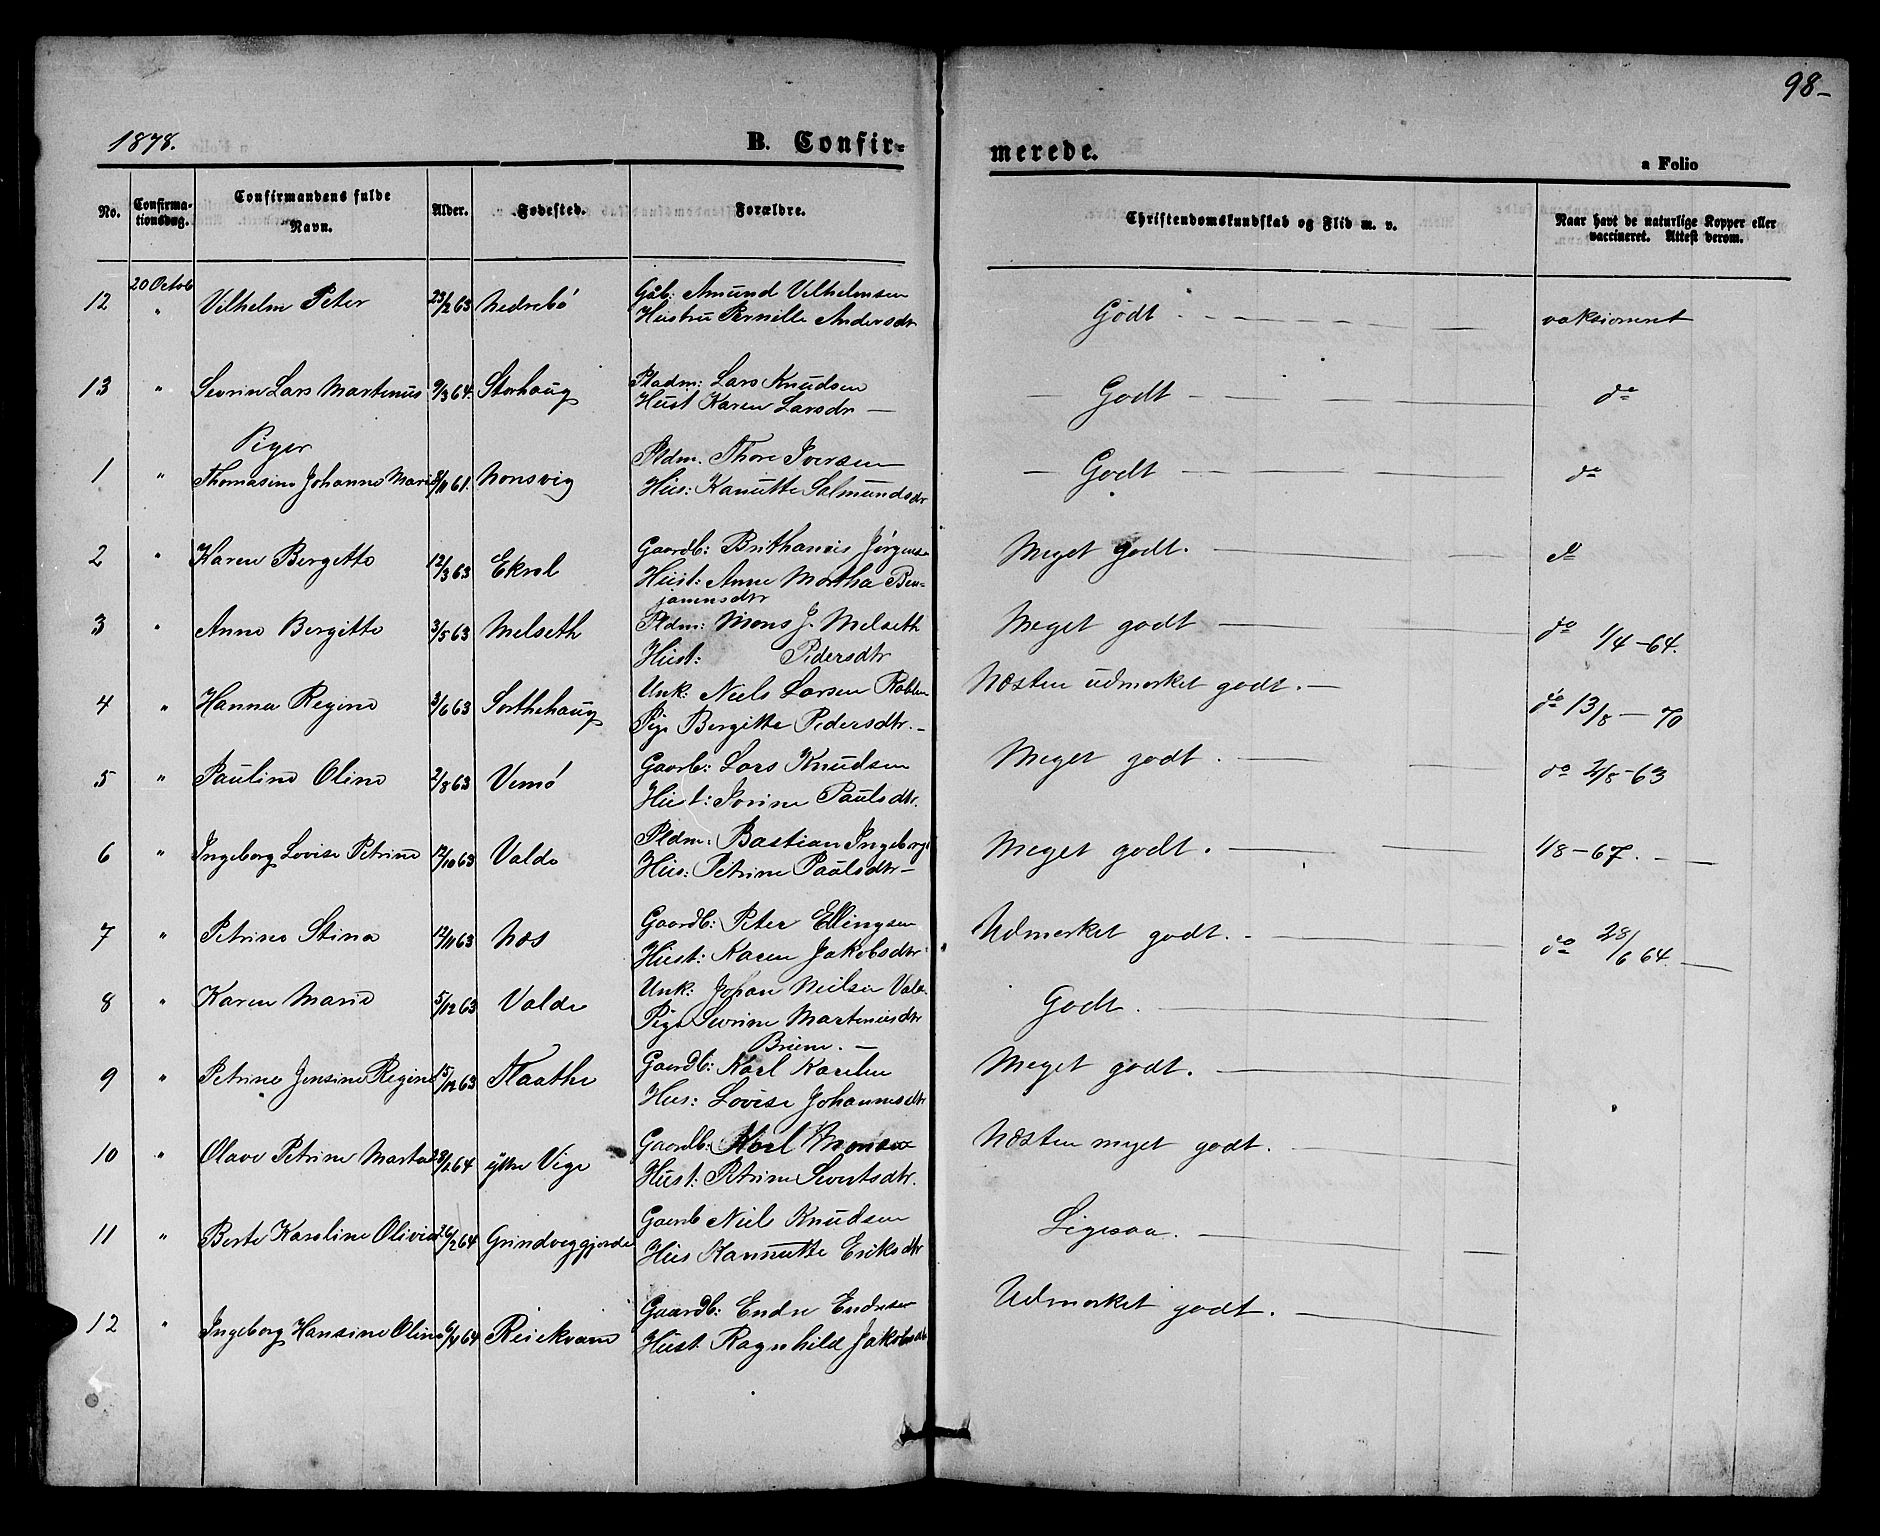 98-
1878.
B. Confir-
merede.
a Folio
No.
Confirma-
tionsdag.
Confirmandens fulde
Navn.
Alder.
Fødested.
Forældre.
Christendomskundskab og Flid m. v.
Naar havt de naturlige Kopper eller
vaccineret. Attest derom.
12 20 Octob " Vilhelm Peter 23/2 63 Nedrebö Gåb: Amund Vilhelmsen
Hustru Pernille Andersdtr
Godt - vaksioneret
13 " Sevrin Lars Martinus 9/3 64. Storhaug Pladm: Lars Knudsen
Hust Karen Larsdr -
- Godt - do
Piger
1 " Thomasine Johanne Marie 8/11 61. Nonsvig Pldm. Thore Iversen
Hus: Kanutte Salmundsdtr
- Godt - do
2 " Karen Bergitte 12/3 63 Ekrol Gaardb: Brithanius Jørgens
Hust: Anne Martha Ben-
jaminsdtr
Meget godt. - do
3 " Anne Bergitte 3/5 63 Melseth Pldm: Mons J. Melseth
Hust: Pedersdtr
Meget godt - do 1/4-64.
4 " Hanna Regine 3/6 63 Sorthehaug Unk: Niels Larsen
Pige Bergitte Pedersdtr. -
Næsten udmerket godt. - do 13/8 - 70
5 " Pauline Oline 2/8 63 Vemö Gaarb: Lars Knudsen
Hust: Jorine Paulsdtr.
Meget godt. - do 2/8-63
6 " Ingeborg Lovise Petrine 12/10 63 Valde Pldm: Bastian Ingebrigt
Hus: Petrine Paulsdtr -
Meget godt. - 1/8-67. -
7 " Petrine Stina 12/11 63 Næs Gaardb: Peter Ellingsen
Hust: Karen Jakobsdtr
Udmerket godt. - do 28/6 64. -
8 " Karen Marie 5/12 63 Valde Unk: Johan Nielsen Valde
Pige Sevrine Martiniusdtr
Brune. -
Godt. -
9 " Petrine Jensine Regine 15/12 63 Flaathe Gaardb: Karl Karelen
Hus: Lovise Johannesdtr
Meget godt. -
10 " Olave Petrine Marta 28/2 64 ytre Vige Gaardb: Karl Monsen
Hust: Petrine Sivertsdtr.
Næsten meget godt. -
11 " Berte Karoline Olivia 26/2 64 Grindveggjorde Gaarb Niels Knudsen
Hus Kannutte Eriksdtr
Ligesaa. -
12 " Ingeborg Hansine Oline 6/4 64 Reiekvam Gaardb: Endre Endresen
Hust. Ragnhild Jakobsdtr
Udmerket godt. -